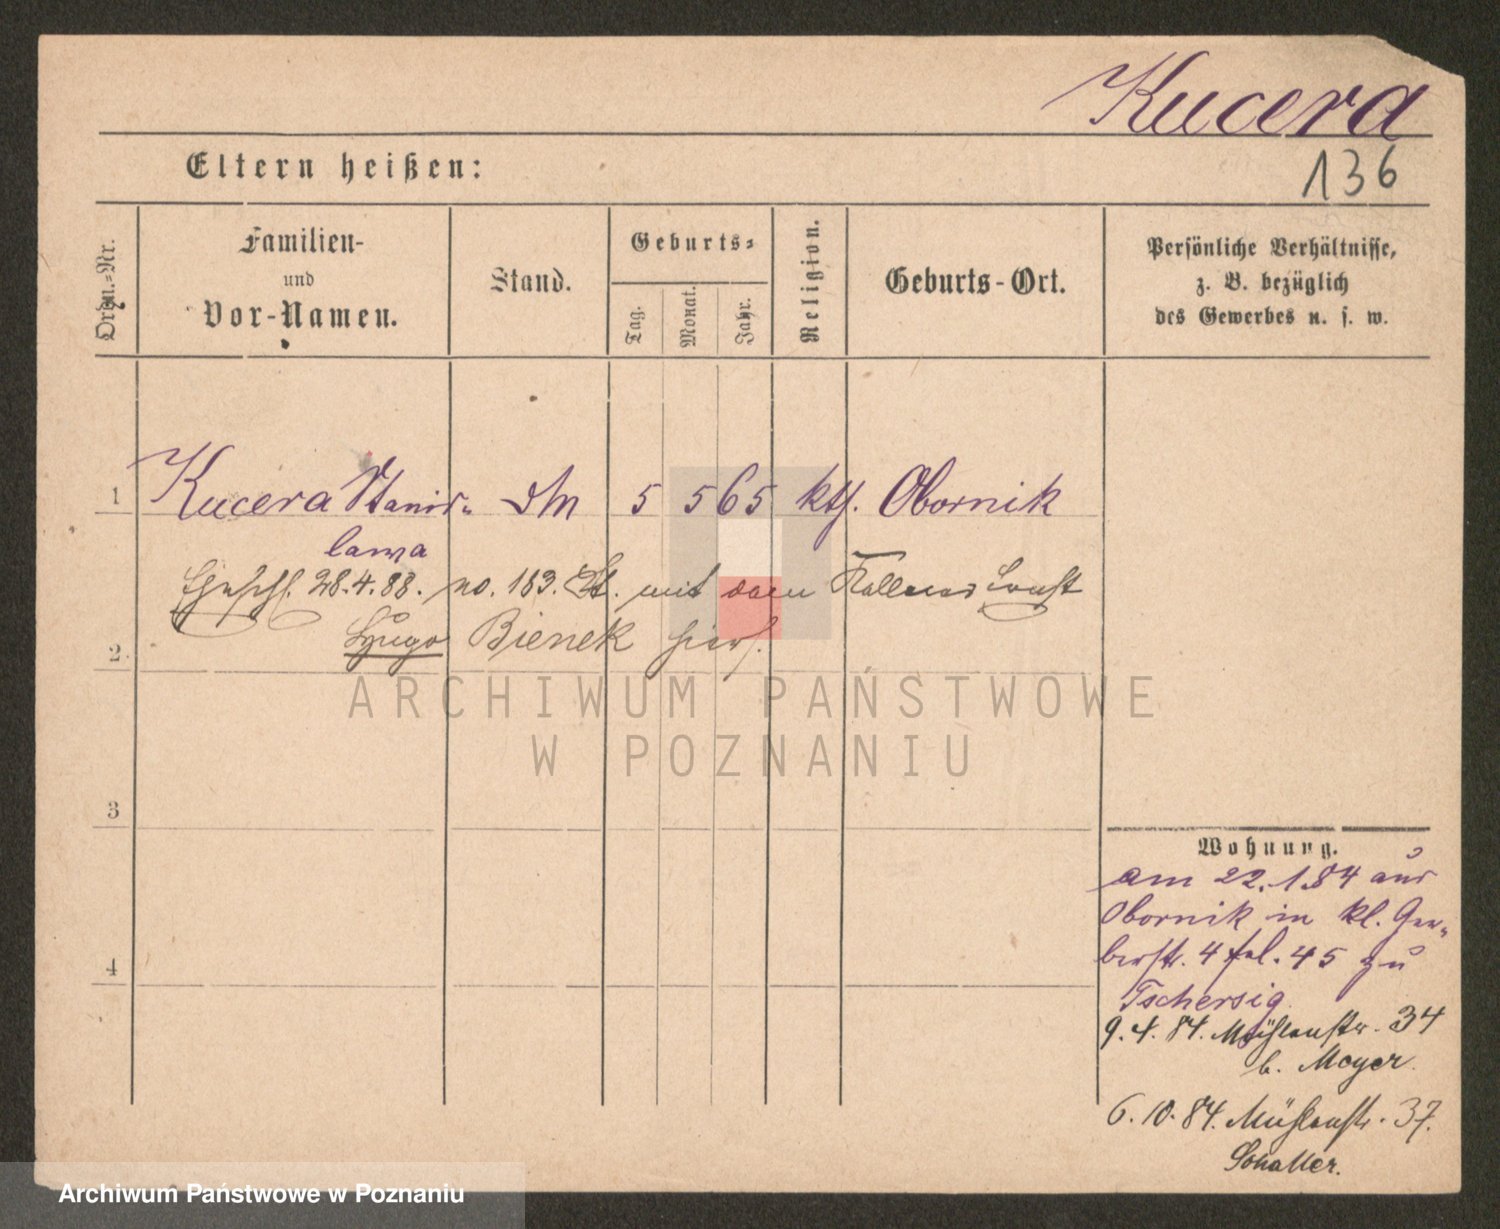 Kucera
Eltern heißen:
136
Ordn.-Nr.
Familien-
und
Vor-Namen.
Stand.
Geburts-
Tag.
Monat.
Jahr.
Religion.
Geburts-Ort.
Persönliche Verhältnisse,
z. B. bezüglich
des Gewerbes u. s. w.
1 Kucera Stanis- 5 5 65 kth. Obornik
lawa
28.4.88. no. 183. mit dem
2. Hugo Bienek hier.
3
4
Wohnung.
am 22.1.84 aus
Obornik in kl. Ger-
berstr. 4 fol. 45 zu
Tschersig
9.4.84. Mühlenstr. 34
b. Meyer.
6.10.84. Mühlenstr. 37.
Schaller.
ARCHIWUM PAŃSTWOWE
W POZNANIU
Archiwum Państwowe w Poznaniu